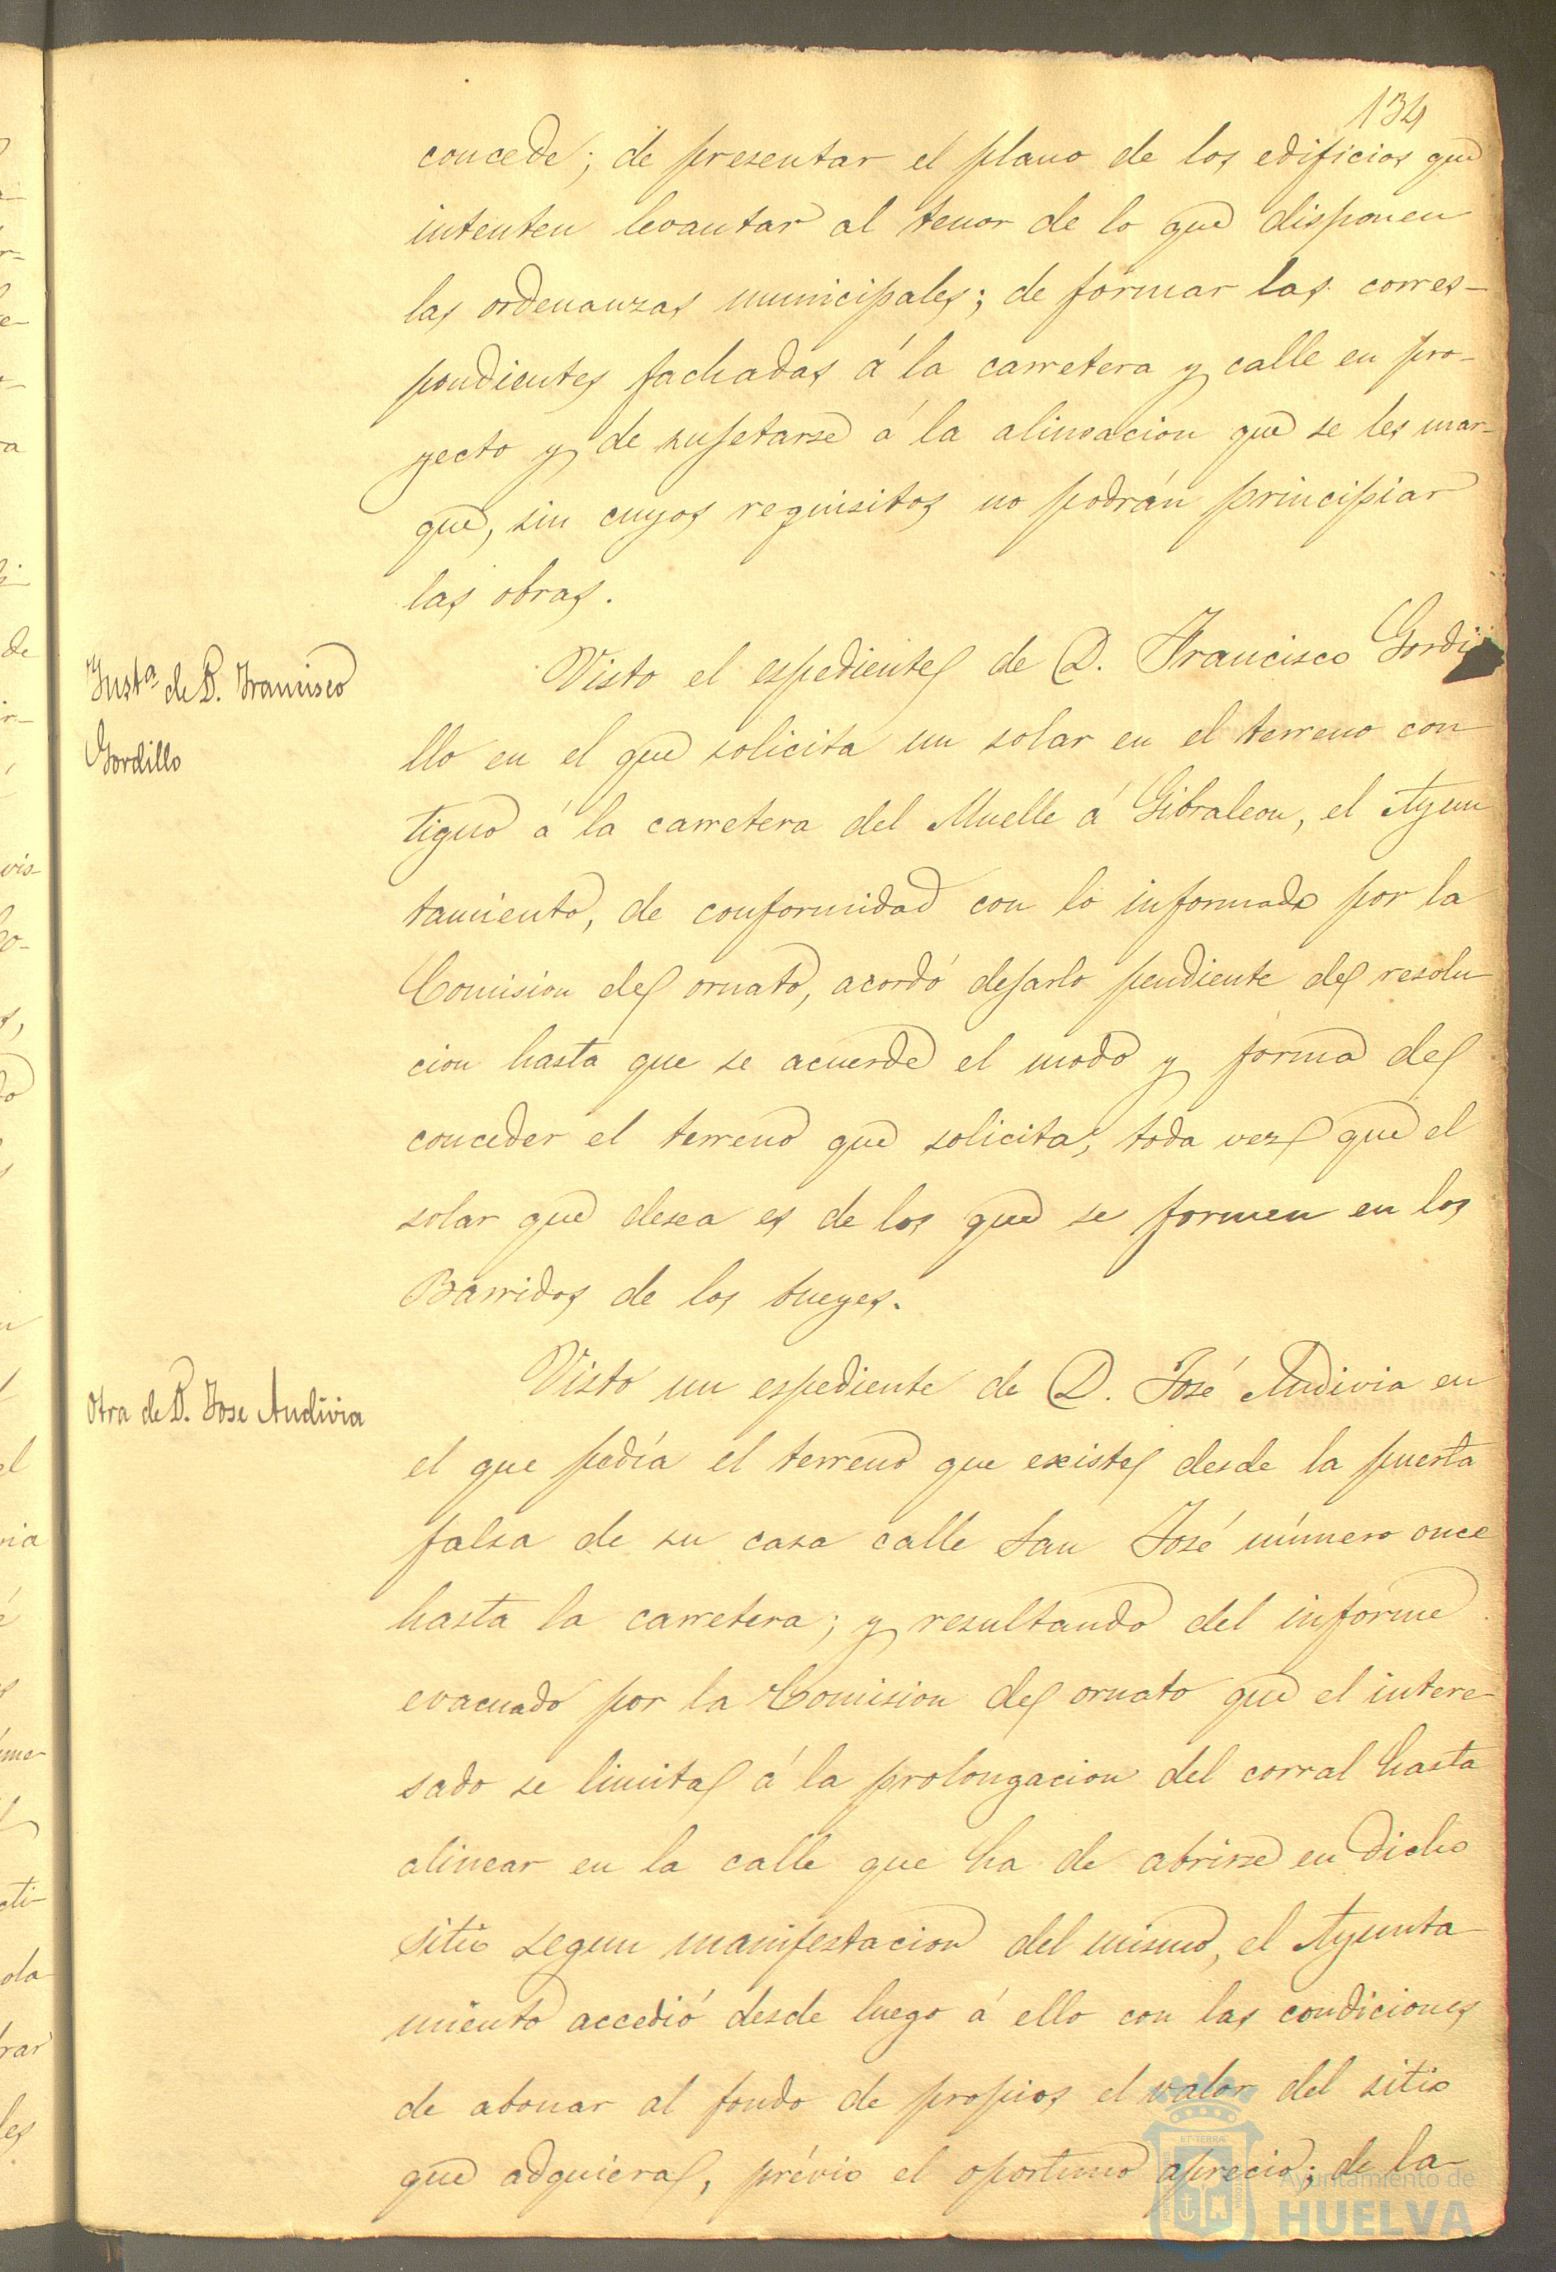 134
concede; de presentar el plano de los edificios que
intenten levantar al tenor de lo que disponen
las ordenanzas municipales; de formar las corres-
pondientes fachadas á la carretera y calle en pro-
yecto y de sujetarse á la alineacion que se les mar-
que, sin cuyos requisitos no podrán principiar
las obras.
Insta de D. Francisco
Gordillo
Visto el espediente de D. Francisco Gordi
llo en el que solicita un solar en el terreno con
tiguo á la carretera del Muelle á Gibraleon, el Ayun
tamiento, de conformidad con lo informado por la
Comision de ornato, acordó dejarlo pendiente de resolu
cion hasta que se acuerde el modo y forma de
conceder el terreno que solicita, toda vez que el
solar que desea es de los que se formen en los
Barridos de los bueyes.
Otra de D. Jose Andivia
Visto un espediente de D. José Andivia en
el que pedía el terreno que existe desde la puerta
falsa de su casa calle San José número once
hasta la carretera; y resultando del informe
evacuado por la Comision de ornato que el intere-
sado se limita á la prolongacion del corral hasta
alinear en la calle que ha de abrirse en dicho
sitio segun manifestacion del mismo, el Ayunta-
miento accedió desde luego á ello con las condiciones
de abonar al fondo de propios el valor del sitio
que adquiera, prévio el oportuno aprecio; de la
Ayuntamiento de
HUELVA